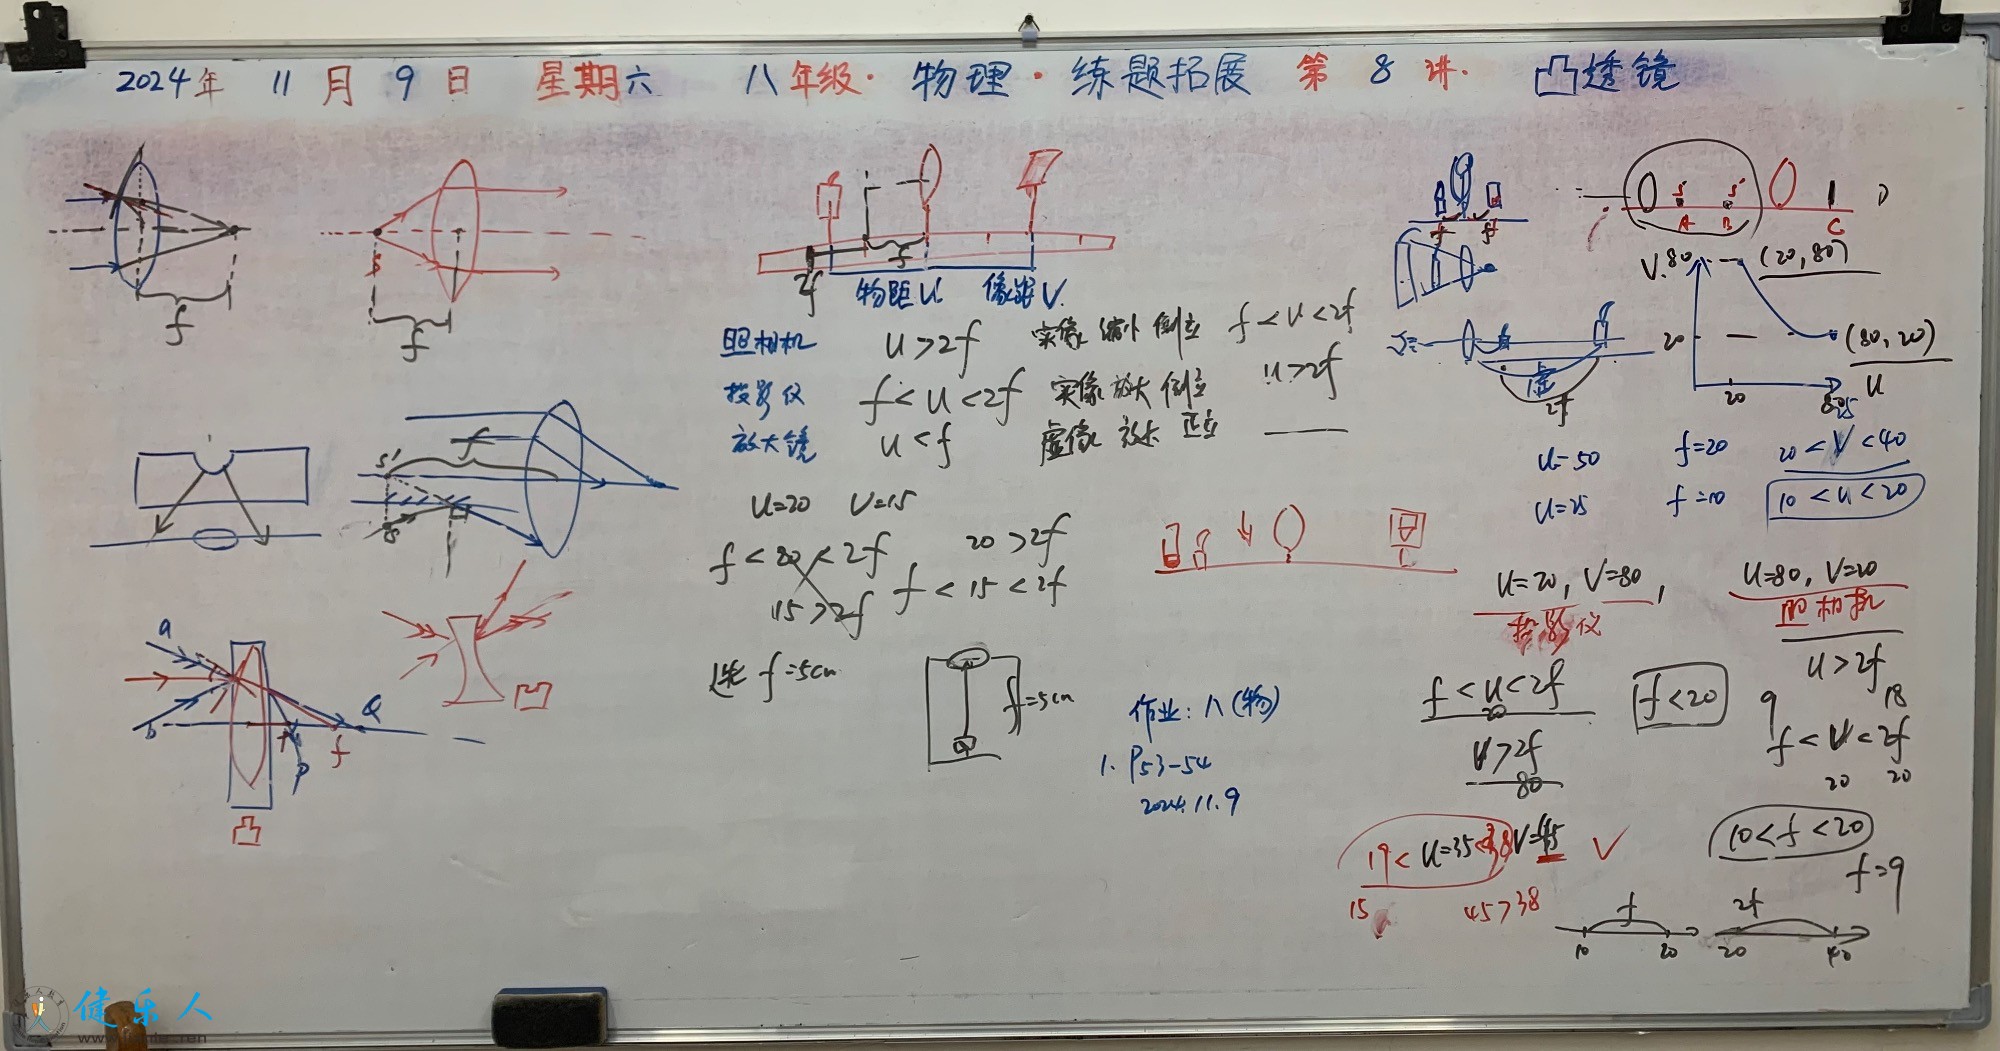 2024年 11 月 9 日 星期六 八年级·物理·练题拓展 第 8 讲. 凸透镜
f
S
f
2f
f
物距U 像距V.
照相机 U>2f 实像 缩小 倒立 f<V<2f
投影仪 f<U<2f 实像 放大 倒立 U>2f
放大镜 U<f 虚像 放大 正立 ——
S' f
S
U=20 V=15
f<20<2f 20>2f
15>2f f<15<2f
选 f=5cm
f=5cm
a
b
Q
f
P
凸
凹
作业: 八(物)
1. P53-54
2024.11.9
f f
S S'
A B C D
V. 80 (20,80)
20 (80,20)
20 80 U
虚
2f
U=50 f=20 20<V<40
U=25 f=10 10<U<20
U=20, V=80, U=80, V=20
投影仪 照相机
f<U<2f f<20 U>2f
20
V>2f
80
9 18
f<V<2f
20 20
19<U=35<38 V=45 √
15 45>38
10<f<20
f=9
f 2f
10 20 20 40
健乐人